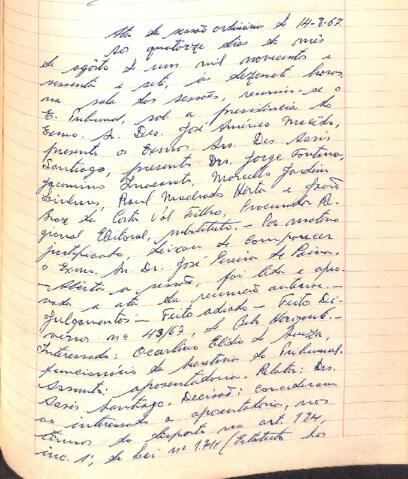 Ata da sessão ordinária de 14-8-67.
Aos quatorze dias do mês
de agôsto de um mil novecentos e
sessenta e sete, às dezessete horas,
na sala das sessões, reuniu-se o
E. Tribunal, sob a presidência do
Exmo. Sr. Des. José Américo Macêdo,
presente os Exmos. Srs. Des. Assis
Santiago, presente Drs. Jorge Fontana,
Jacomino Inacarato, Marcelo Jardim
Linhares, Raul Machado Horta e João
Braz da Costa Val Filho, Procurador Re-
gional Eleitoral, substituto. - Por motivo
justificado, deixou de comparecer
o Exmo. Sr. Dr. José Pereira de Paiva.
- Aberta a sessão, foi lida e apro-
vada a ata da reunião anterior. -
Julgamentos: - Feito adiado - Feito Di-
verso nº 43/67, de Belo Horizonte. -
Interessado: Ocarlino Elísio de Souza,
funcionário da Secretaria do Tribunal.
Assunto: aposentadoria. Relator: Des.
Assis Santiago. Decisão: concederam
ao interessado a aposentadoria, nos
têrmos do disposto no art. 184,
inc. 1º, da lei nº 1.711 (Estatuto dos